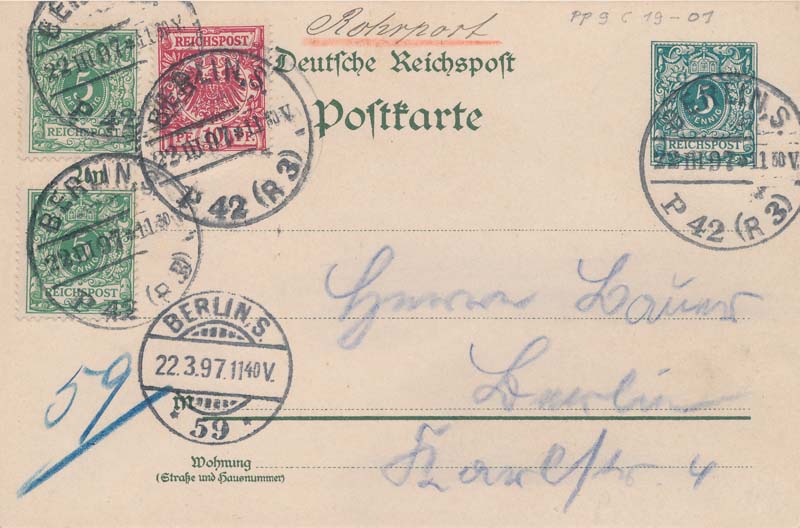 Rohrpost
PP 9 C 19-01
Deutsche Reichspost
Postkarte
5
REICHSPOST
REICHSPOST
5
REICHSPOST
5
REICHSPOST
BERLIN, S.
22 III 97 * 11 30 V.
P 42 (R 3)
BERLIN, S.
22 III 97 * 11 30 V.
P 42 (R 3)
BERLIN, S.
22 III 97 * 11 30 V.
P 42 (R 3)
BERLIN, S.
22 III 97 * 11 30 V.
P 42 (R 3)
An
Herrn Bauer
BERLIN, S.
22.3.97. 11 40 V.
* 59 *
59
in
Berlin
Wohnung
(Straße und Hausnummer)
Karlstr. 4